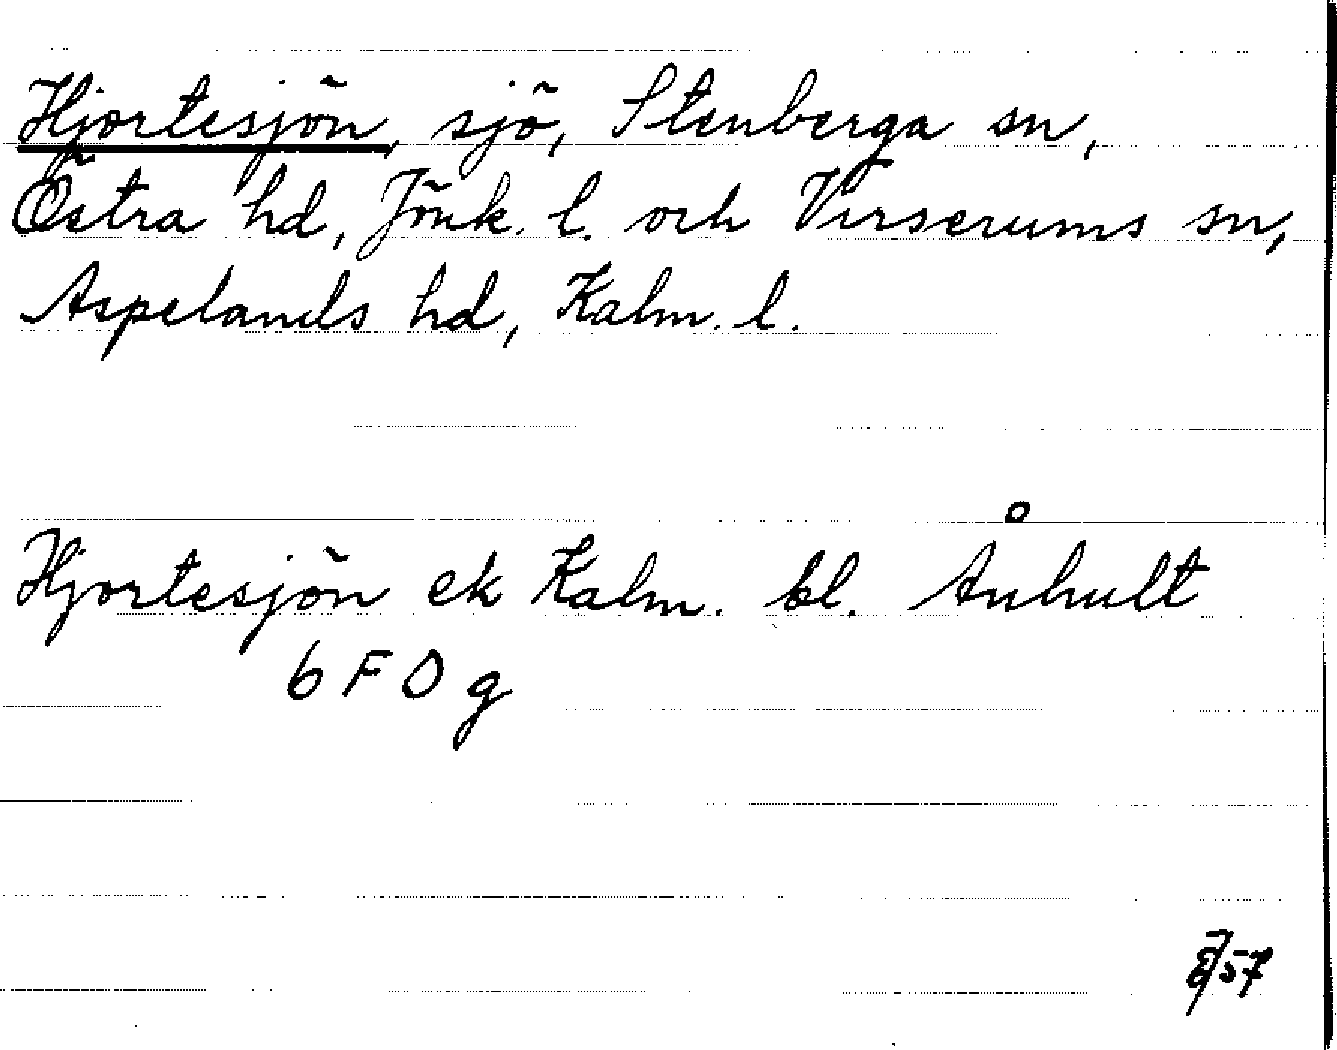 Hjortesjön, sjö, Stenberga sn,
Östra hd, Jönk. l. och Virserums sn,
Aspelands hd, Kalm. l.
Hjortesjön ek Kalm. bl. Ånhult
6 F O g
57